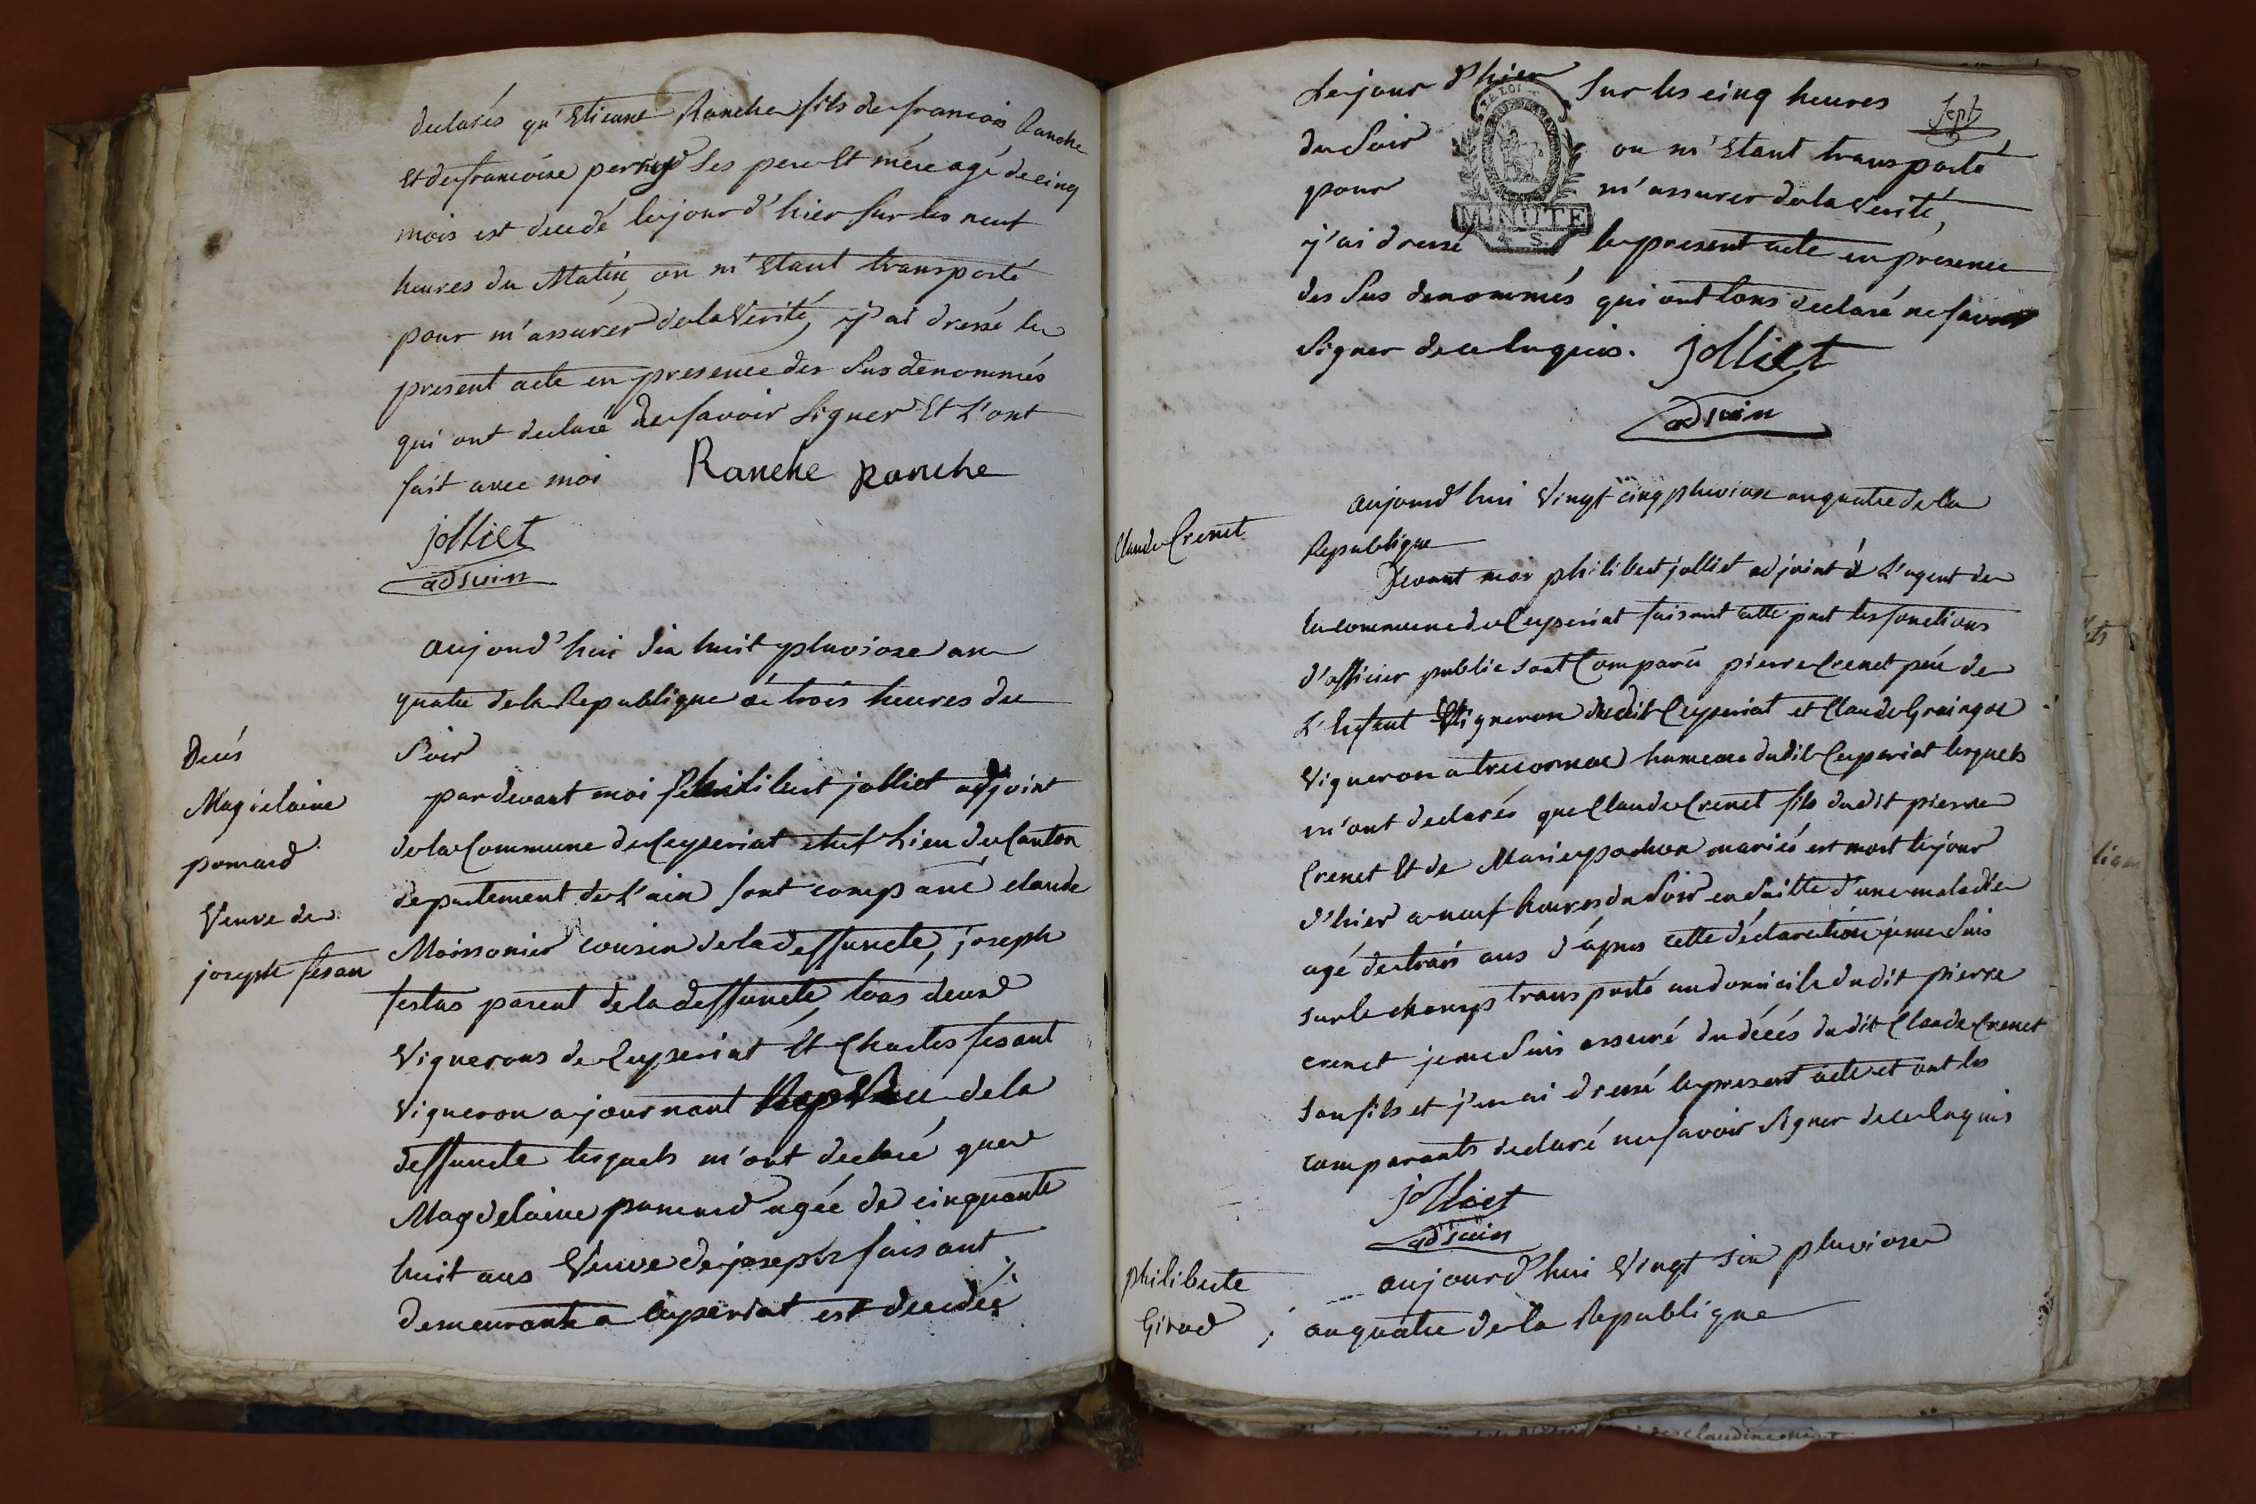 declarés qu'Etienne Ranche fils de francois Ranche
Et de francoise perruq ses pere Et mére agé de cinq
mois est decedé le jour d'hier sur les neuf
heures du Matin, ou m'Etant transporté
pour m'assurer de la Verité, j'ai dressé le
present acte en presence des sus denommés
qui ont declaré de savoir signer Et l'ont
fait avec moi Ranche Ranche
jolliet
adjoin
aujourd'hui dix huit pluviose an
quatre de la Republique à trois heures du
soir
Decés
Magdelaine
ponard
Veuve de
joseph fesan
pardevant moi philibert jolliet adjoint
de la Commune de Ceyseriat chef Lieu du Canton
departement de L'ain sont comparu claude
Moissonier cousin de la deffuncte, joseph
festas parent de la deffuncte tous deux
Vignerons de Ceyseriat Et Charles fesant
Vigneron a journant de la
deffuncte lesquels m'ont declaré que
Magdelaine ponard agée de cinquante
huit ans Veuve de joseph faisant
demeurante a Ceyseriat est decedée
Le jour d'hier sur les cinq heures
sept
du soir ou m'Etant transporté
LA LOI
pour m'assurer de la verité,
MINUTE
j'ai dressé le present acte en presence
des sus denommés qui ont tous declaré ne savoir
signer de ce Enquis. jolliet
adjoin
aujourd'hui Vingt cinq pluviose an quatre de la
Claude Crenet
Republique
Devant moi philibert jolliet adjoint à L'agent de
la commune de Ceyseriat faisant cette part les fonctions
d'officier public sont Comparû pierre Crenet pére de
L'Enfant Vigneron dudit Ceyseriat et Claude Graingoe
Vigneron a treconnae hameau dudit Ceyseriat lesquels
m'ont declarés que Claude Crenet fils dudit pierre
Crenet Et de Marie pochon mariés est mort le jour
d'hier a neuf heures du soir en suitte d'une maladie
agé de trois ans d'apres cette déclaration je me suis
sur le champs transporté au domicile dudit pierre
crenet je me suis assuré du décés dudit Claude Crenet
son fils et j'en ai dressé le present acte et ont les
comparants declaré ne savoir signer de ce Enquis
jolliet
adjoin
philiberte
Girod
aujourd'hui Vingt six pluviose
an quatre de la Republique